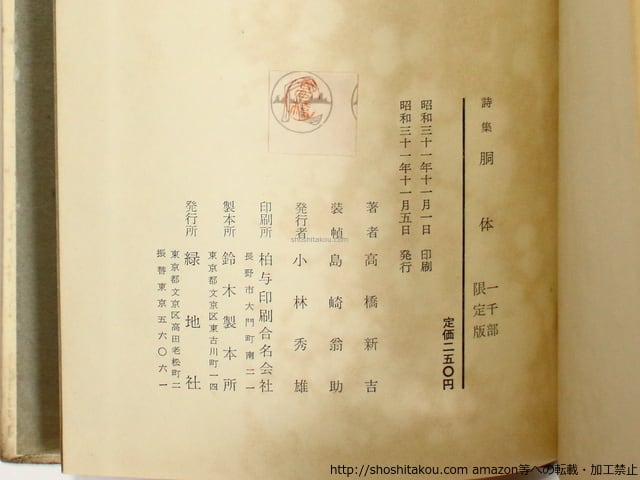 詩集 胴体 一千部限定版
定価二五〇円
昭和三十一年十一月一日 印刷
昭和三十一年十一月五日 発行
著者 高橋新吉
装幀 島崎翁助
発行者 小林秀雄
印刷所 柏与印刷合名会社
長野市大門町南二一
製本所 鈴木製本所
東京都文京区東古川町一四
発行所 緑地社
東京都文京区高田老松町二
振替東京五六〇六一
shoshitakou.com
http://shoshitakou.com amazon等への転載・加工禁止